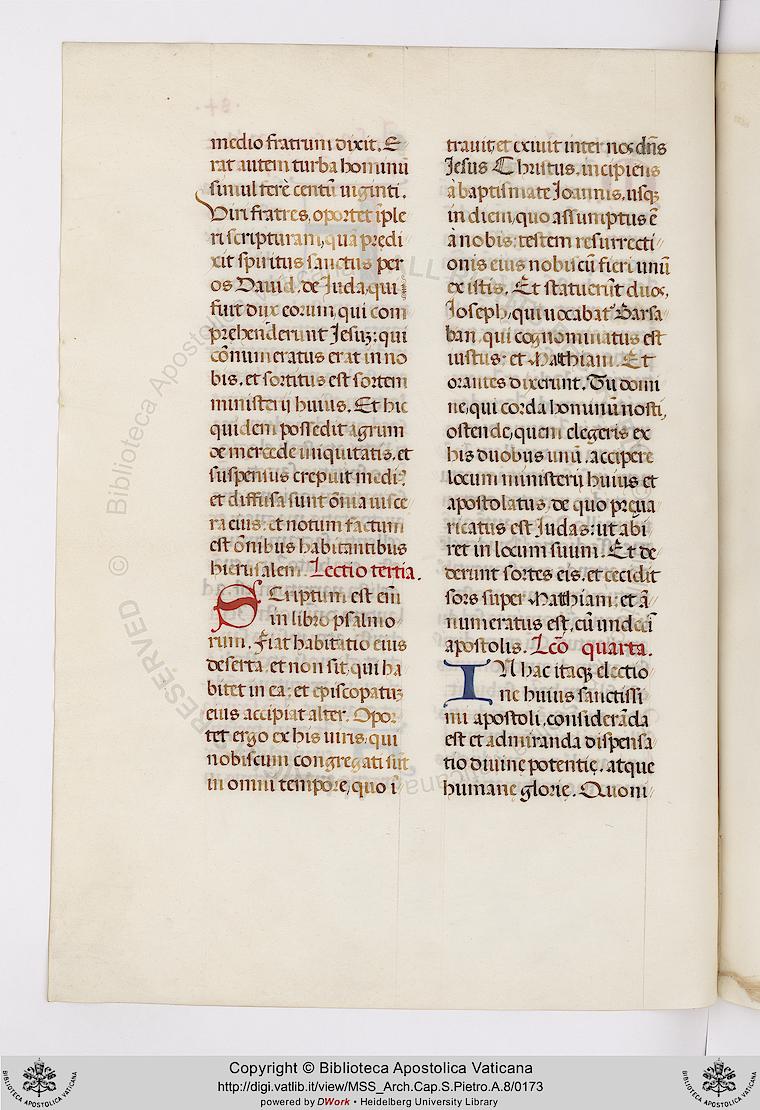 medio fratrum dixit. E
rat autem turba hominũ
simul ferè centũ uiginti.
Viri fratres, oportet ĩple
ri scripturam, quã predi
xit spiritus sanctus per
os Dauid, de Iuda, qui
fuit dux eorum, qui com
prehenderunt Jesuȝ: qui
cõnumeratus erat in no
bis, et sortitus est sortem
ministerij huius. Et hic
quidem possedit agrum
de mercede iniquitatis, et
suspensus crepuit mediꝰ,
et diffusa sunt õnia uisce
ra eius: et notum factum
est õnibus habitantibus
hierusalem. Lectio tertia.
SCriptum est em̃
in libro psalmo
rum. Fiat habitatio eius
deserta, et non sit, qui ha
bitet in ea: et episcopatuȝ
eius accipiat alter. Opor
tet ergo ex his uiris, qui
nobiscum congregati sũt
in omni tempore, quo ĩ
trauit et exiuit inter nos dñs
Jesus Christus, incipiens
à baptismate Ioannis, usqȝ
in diem, quo assumptus ẽ
à nobis: testem resurrecti
onis eius nobiscũ fieri unũ
ex istis. Et statuerũt duos,
Joseph, qui uocabat᷑ Barsa
ban, qui cognominatus est
iustus: et Matthiam. Et
orantes dixerunt. Tu domi
ne, qui corda hominũ nosti,
ostende, quem elegeris ex
his duobus unũ, accipere
locum ministerij huius et
apostolatus, de quo preua
ricatus est Judas: ut abi
ret in locum suum. Et de
derunt sortes eis, et cecidit
sors super Matthiam: et ã
numeratus est, cũ undecĩ
apostolis. Lcõ quarta.
IN hac itaqȝ electio
ne huius sanctissi
mi apostoli, considerãda
est et admiranda dispensa
tio diuine potentie, atque
humanę glorię. Quoni
Copyright © Biblioteca Apostolica Vaticana
http://digi.vatlib.it/view/MSS_Arch.Cap.S.Pietro.A.8/0173
powered by DWork • Heidelberg University Library